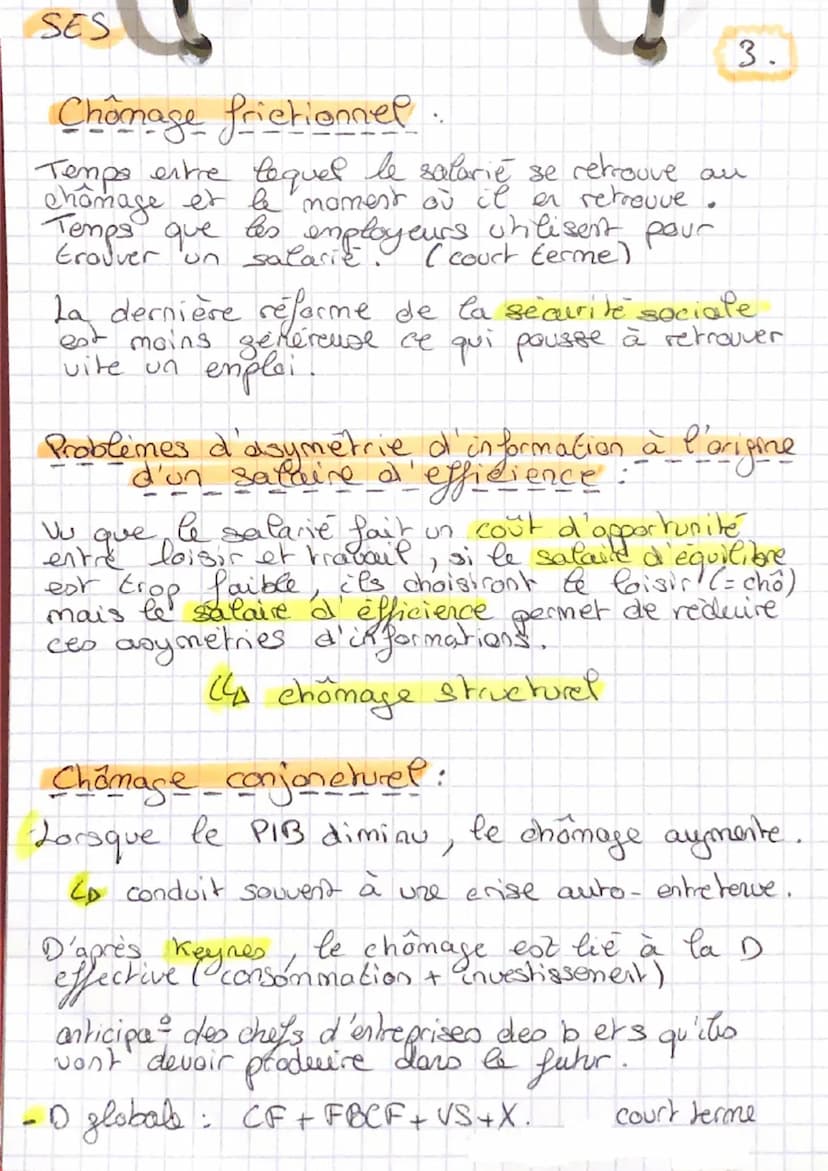 SES
3.
Chômage frictionnel :
Temps entre lequel le salarié se retrouve au
chômage et le moment où il en retrouve.
Temps que les employeurs utilisent pour
trouver un salarié. (court terme)
La dernière réforme de la sécurité sociale
est moins généreuse ce qui pousse à retrouver
vite un emploi.
Problèmes d'asymétrie d'information à l'origine
d'un salaire d'efficience :
Vu que le salarié fait un coût d'opportunité
entre loisir et travail, si le salaire d'équilibre
est trop faible, ils choisiront le loisir (= chô)
mais le salaire d'éfficience permet de réduire
ces asymétries d'informations.
↳ chômage structurel
Chômage conjoncturel :
Lorsque le PIB diminu, le chômage augmente.
↳ conduit souvent à une crise auto-entretenue.
D'après Keynes, le chômage est lié à la D
effective (consommation + investissement)
anticipa° des chefs d'entreprises des b ers qu'ils
vont devoir produire dans le futur.
- D globale : CF + FBCF + VS + X. court terme